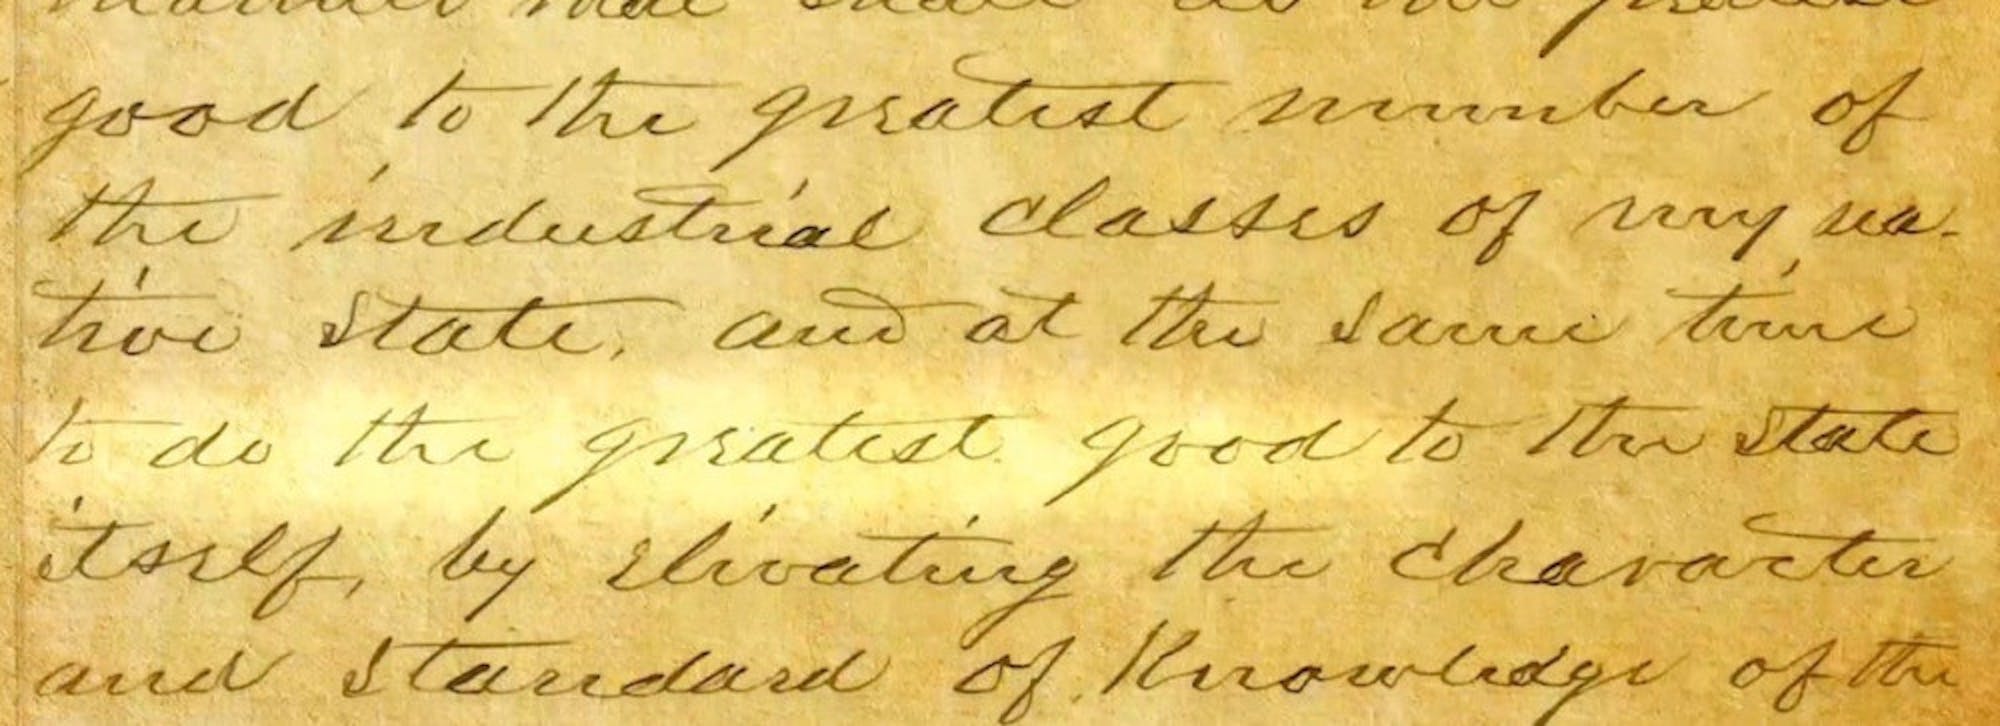 manner that shall do the greatest
good to the greatest number of
the industrial classes of my na-
tive state, and at the same time
to do the greatest good to the state
itself, by elivating the character
and standard of knowledge of the